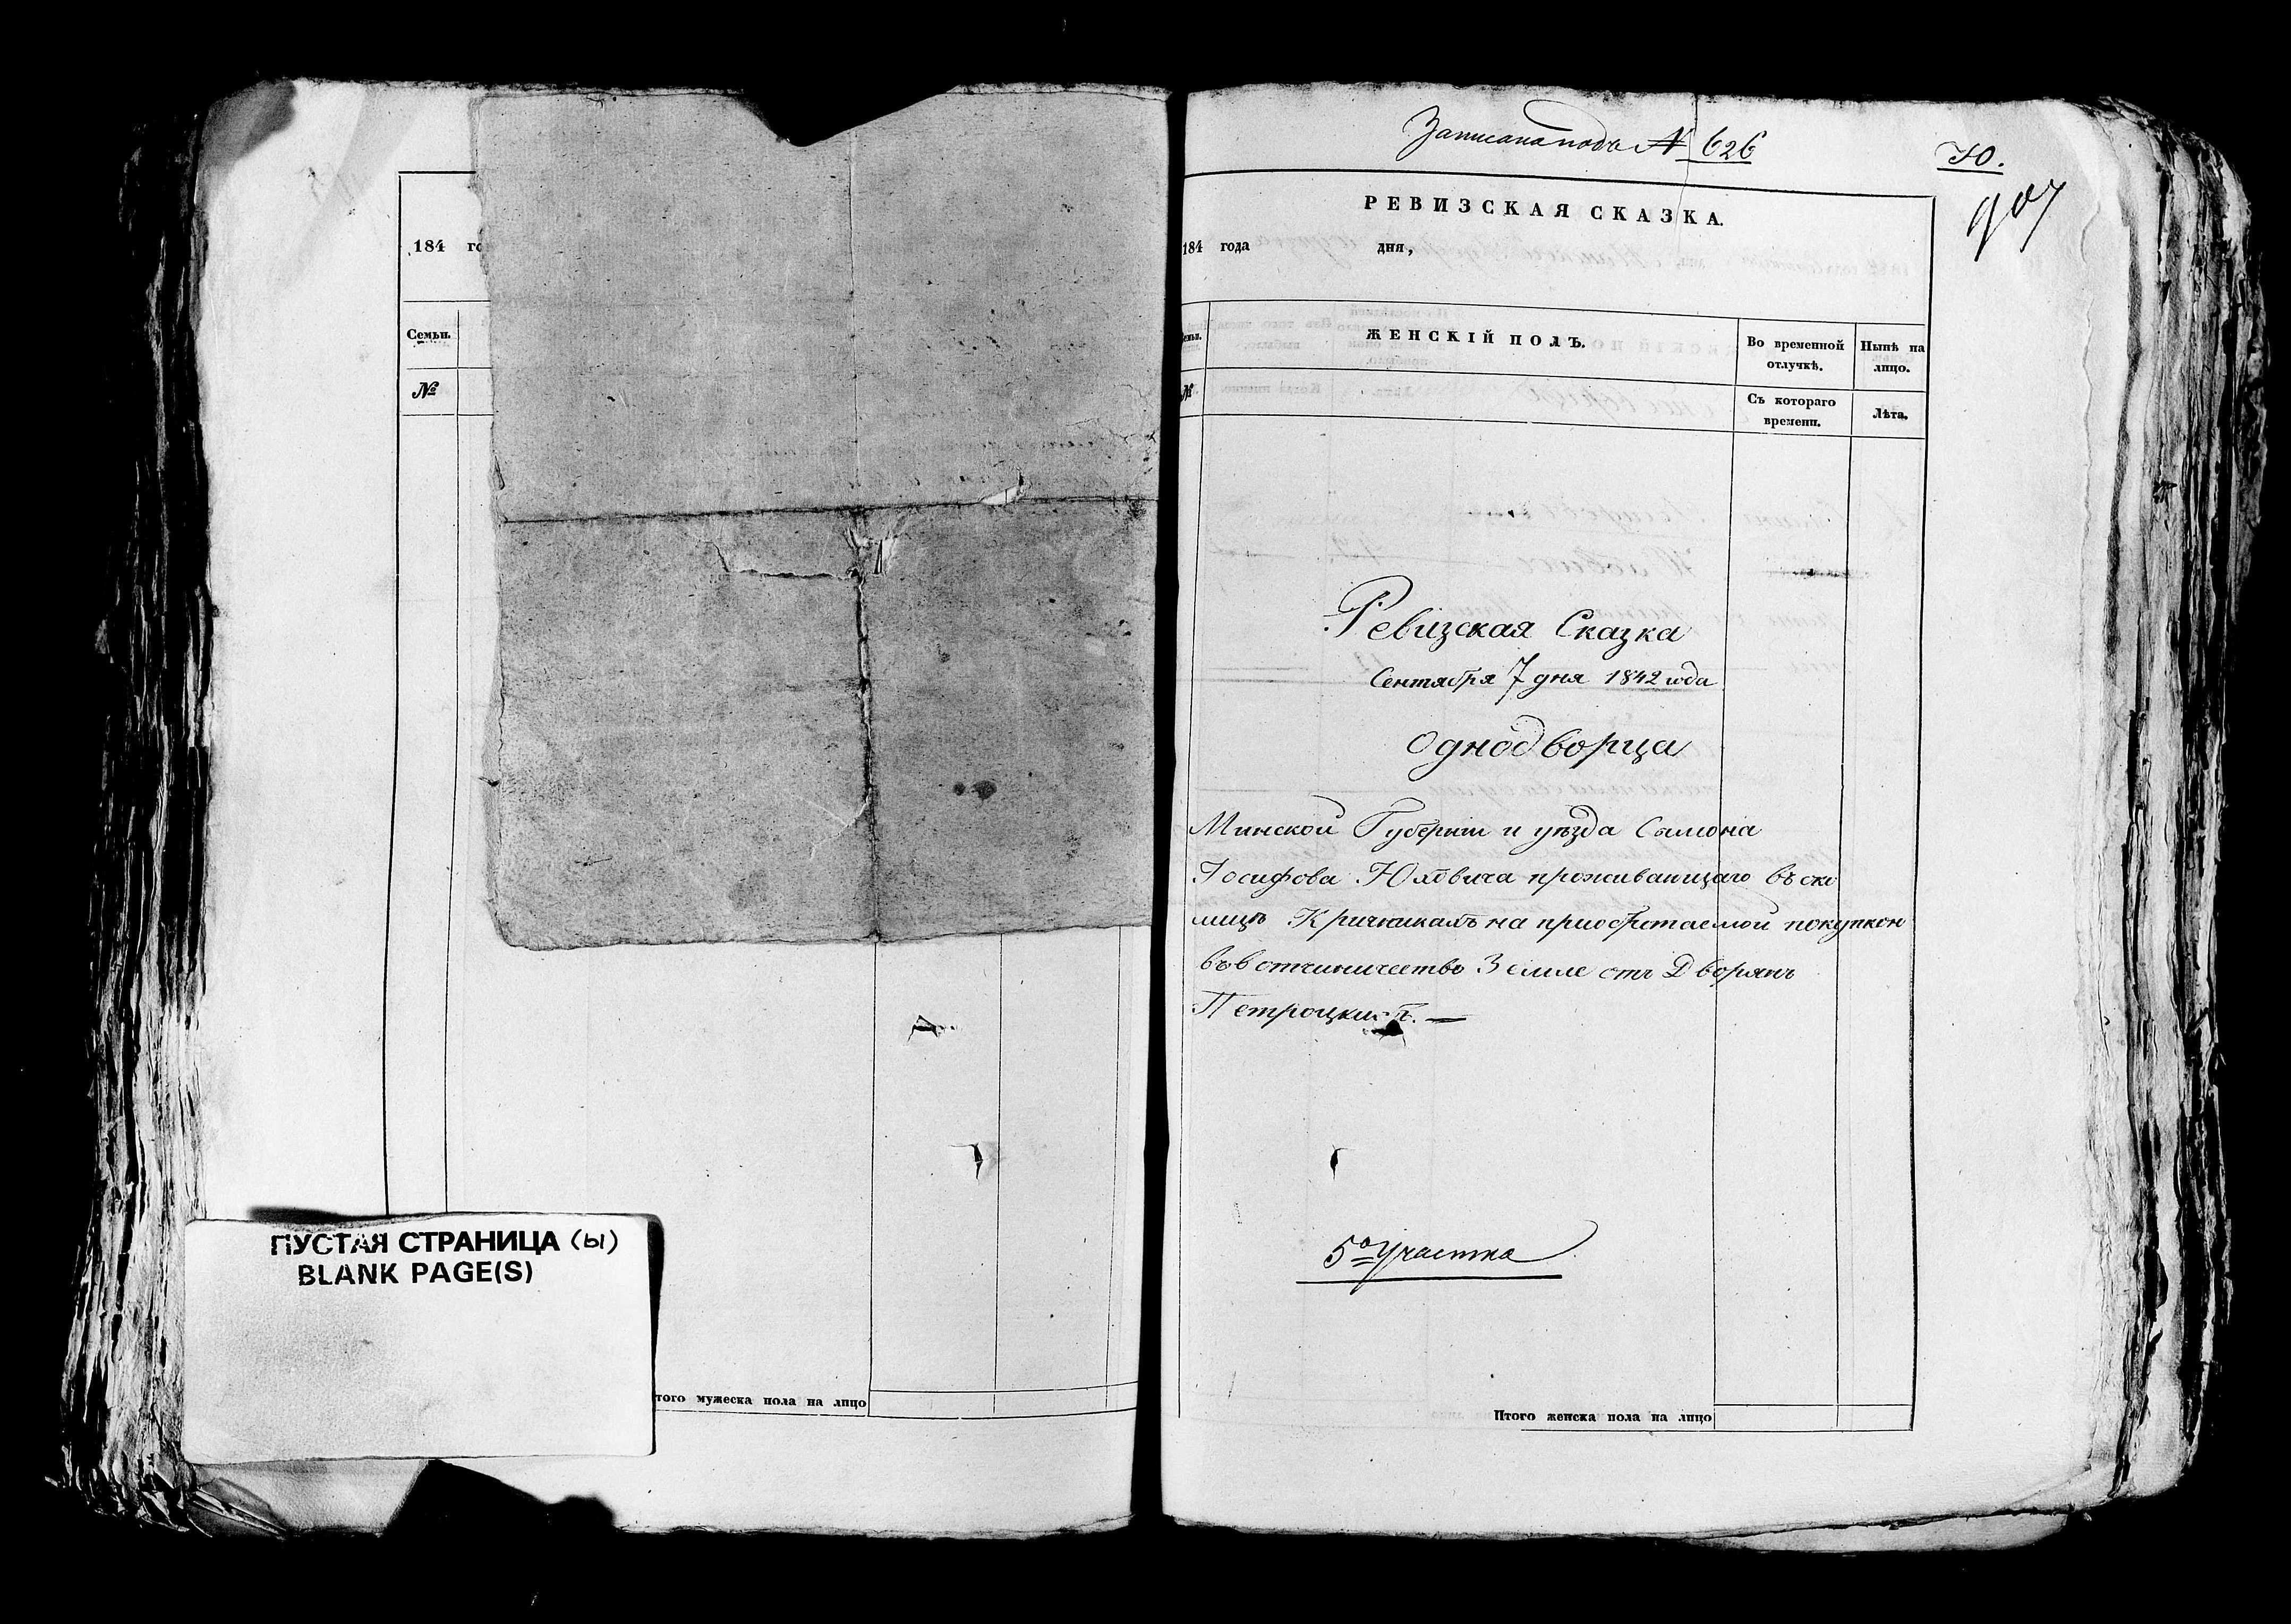 184 го
Семьи.
№
того мужеска пола на лицо
ПУСТАЯ СТРАНИЦА (ы)
BLANK PAGE(S)
Записана подъ № 626
Ю.
907
РЕВИЗСКАЯ СКАЗКА.
184 года дня,
ЖЕНСКІЙ ПОЛЪ.
Во временной отлучкѣ.
Нынѣ на лицо.
№
Съ котораго времени.
Лѣта.
Ревизская Сказка
Сентября 7 дня 1842 года
Однодворца
Минской Губерніи и уѣзда Сымона
Іосифова Юховича проживающаго въ око
лицѣ Кричникахъ на приобретаемой покупкою
въ вотчиничество Земле отъ Дворянъ
Петроцкихъ. —
5го Участка
Итого женска пола на лицо